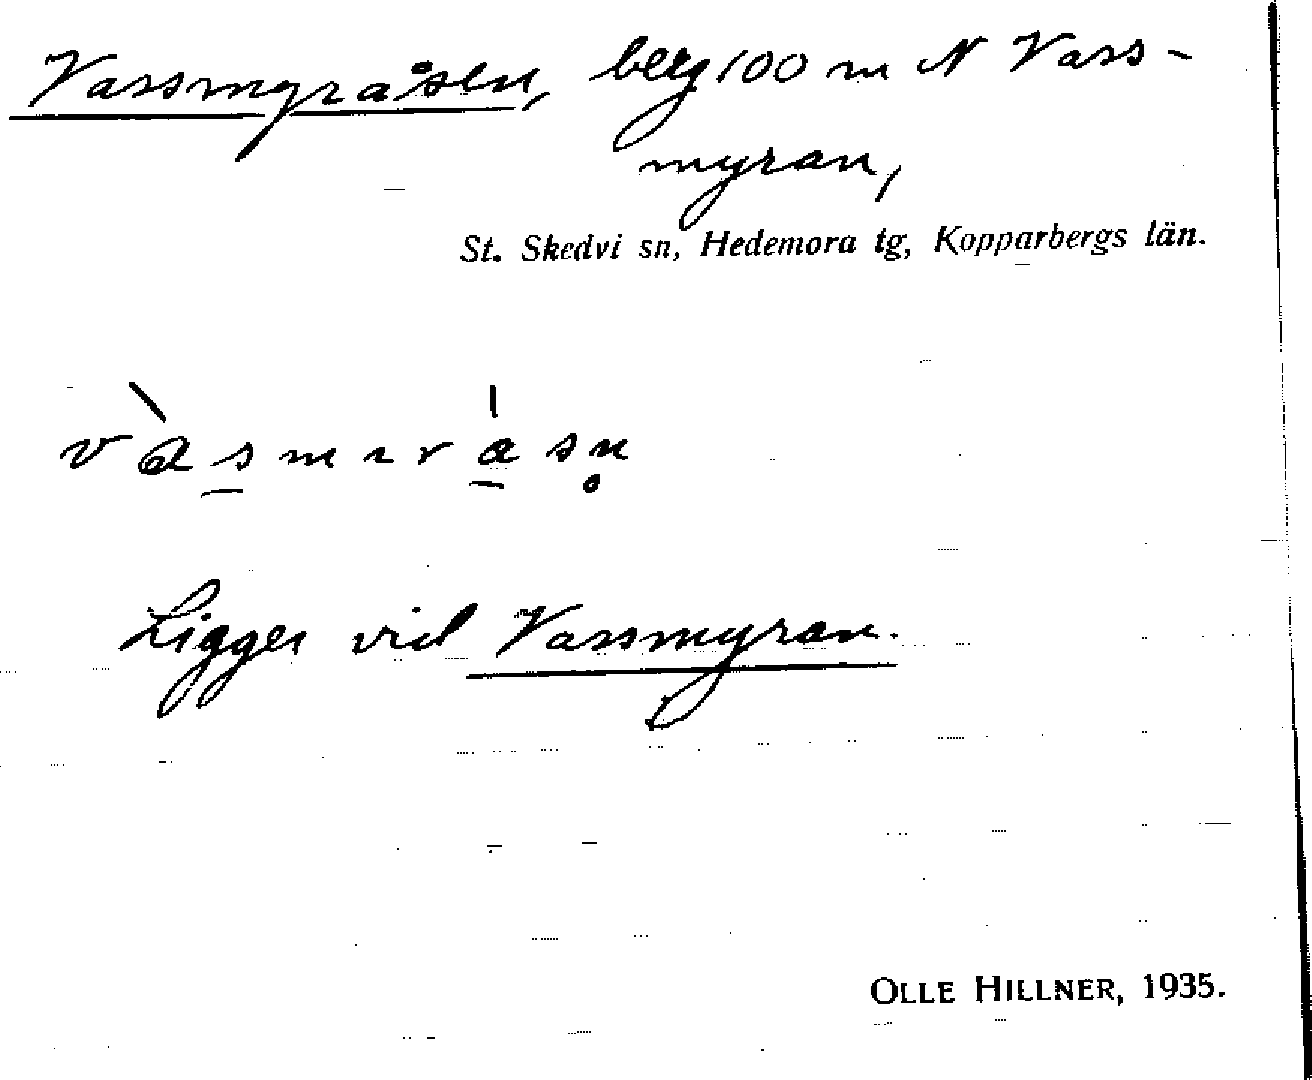 Vassmyråsen, berg 100 m N Vass-
myran,
St. Skedvi sn, Hedemora tg, Kopparbergs län.
Ligger vid Vassmyran.
OLLE HILLNER, 1935.